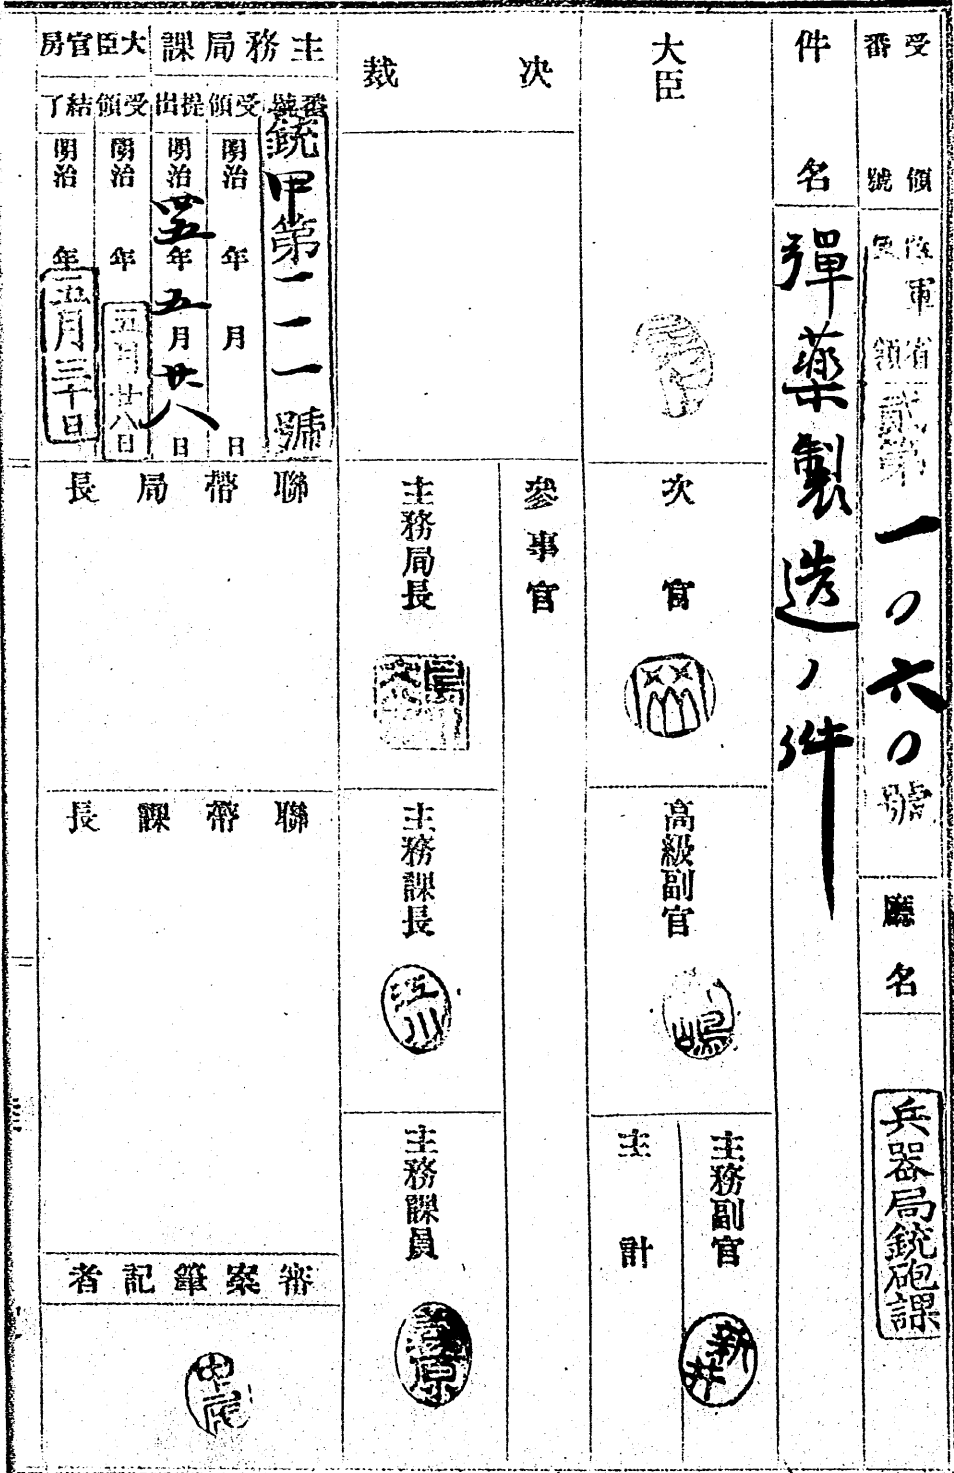 受領番號
陸軍省受領
貳第一〇六〇號
廳名
兵器局銃砲課
件名
彈藥製造ノ件
大臣
次官
高級副官
主務副官
新井
主計
決裁
參事官
主務局長
主務課長
江川
主務課員
原
主務局課
番號
銃甲第一二一號
受領
明治 年 月 日
提出
明治卅五年五月廿八日
大臣官房
受領
明治 年
五月廿八日
結了
明治 年
五月三十日
聯帶局長
聯帶課長
審案筆記者